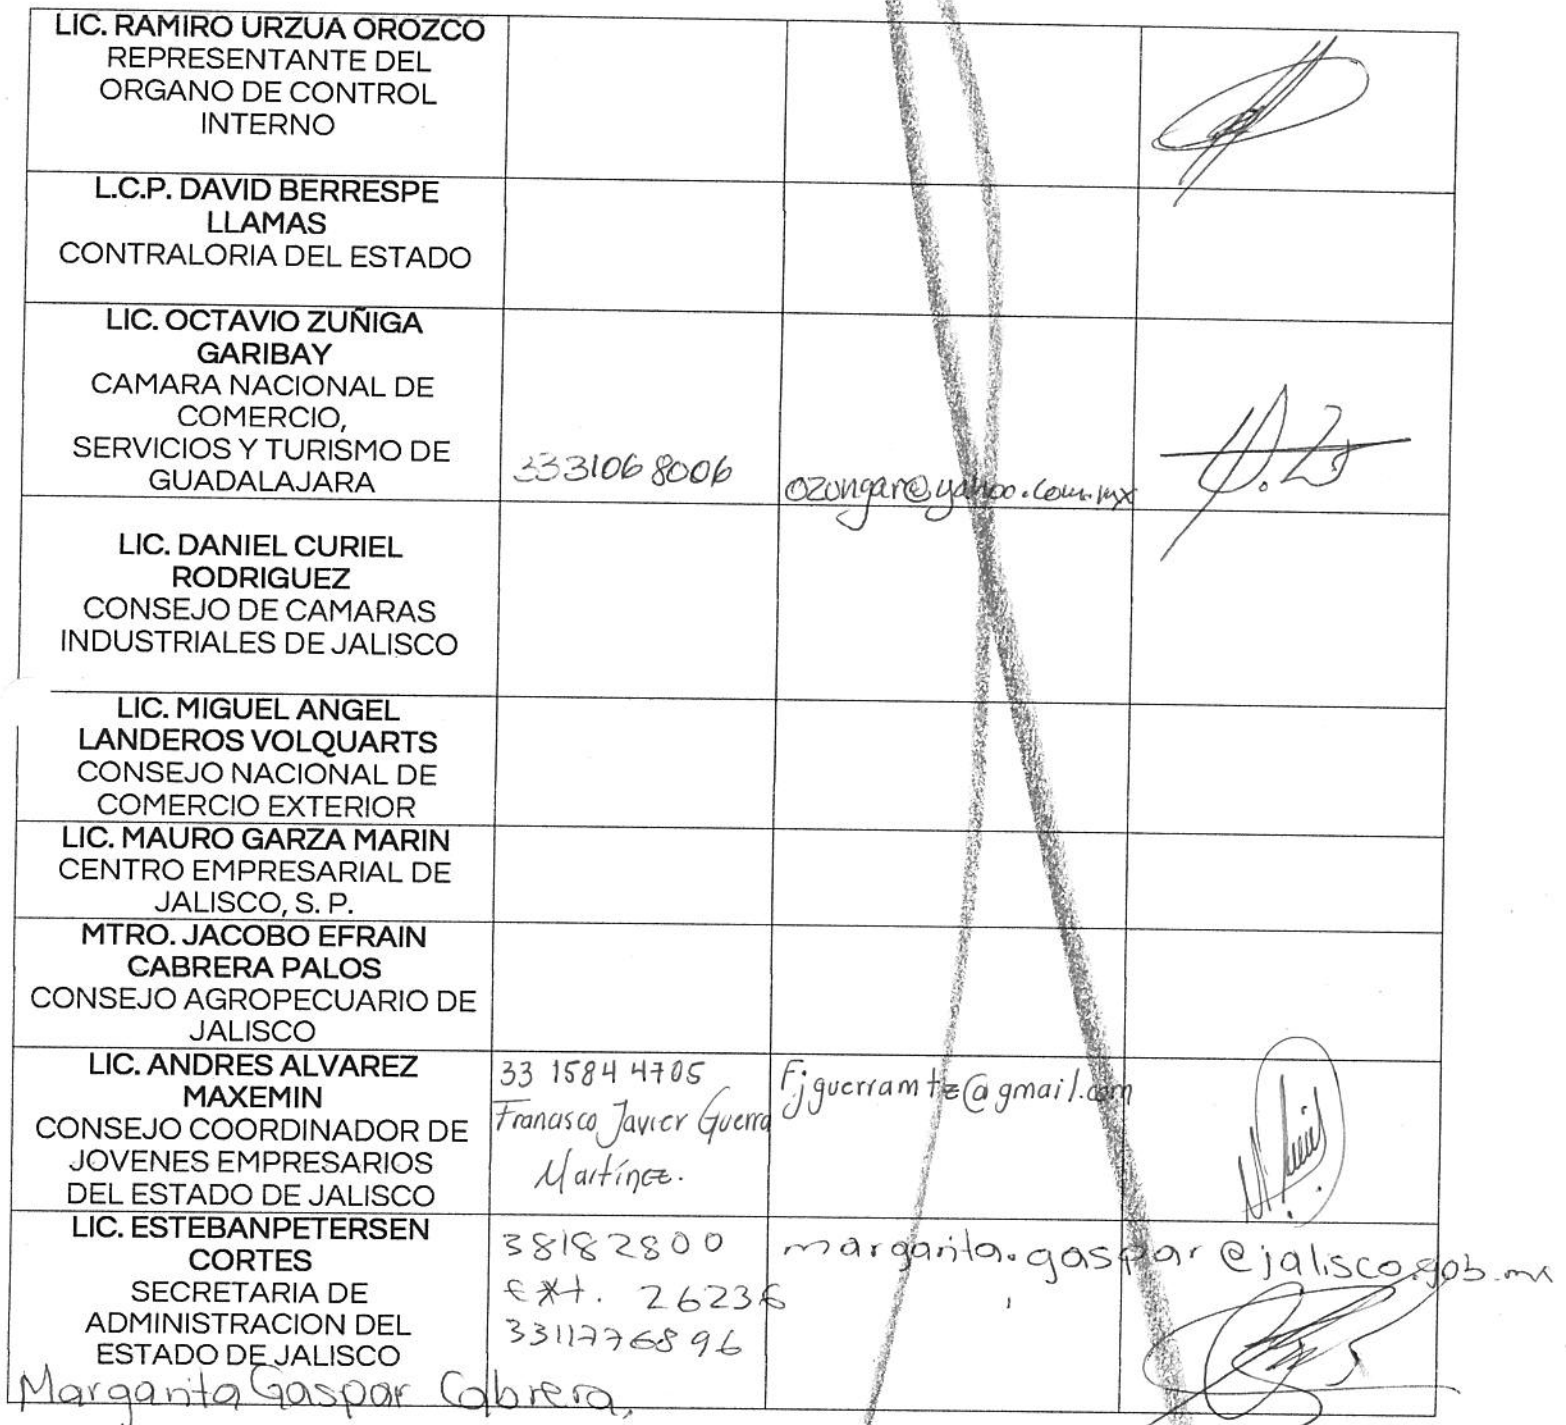 LIC. RAMIRO URZUA OROZCO
REPRESENTANTE DEL
ORGANO DE CONTROL
INTERNO
L.C.P. DAVID BERRESPE
LLAMAS
CONTRALORIA DEL ESTADO
LIC. OCTAVIO ZUÑIGA
GARIBAY
CAMARA NACIONAL DE
COMERCIO,
SERVICIOS Y TURISMO DE
GUADALAJARA
3331068006
ozungar@yahoo.com.mx
LIC. DANIEL CURIEL
RODRIGUEZ
CONSEJO DE CAMARAS
INDUSTRIALES DE JALISCO
LIC. MIGUEL ANGEL
LANDEROS VOLQUARTS
CONSEJO NACIONAL DE
COMERCIO EXTERIOR
LIC. MAURO GARZA MARIN
CENTRO EMPRESARIAL DE
JALISCO, S. P.
MTRO. JACOBO EFRAIN
CABRERA PALOS
CONSEJO AGROPECUARIO DE
JALISCO
LIC. ANDRES ALVAREZ
MAXEMIN
CONSEJO COORDINADOR DE
JOVENES EMPRESARIOS
DEL ESTADO DE JALISCO
33 1584 4705
Francisco Javier Guerra
Martínez.
Fjguerramtz@gmail.com
LIC. ESTEBANPETERSEN
CORTES
SECRETARIA DE
ADMINISTRACION DEL
ESTADO DE JALISCO
Margarita Gaspar Cabrera,
38182800
ext. 26236
3311776896
margarita.gaspar@jalisco.gob.mx